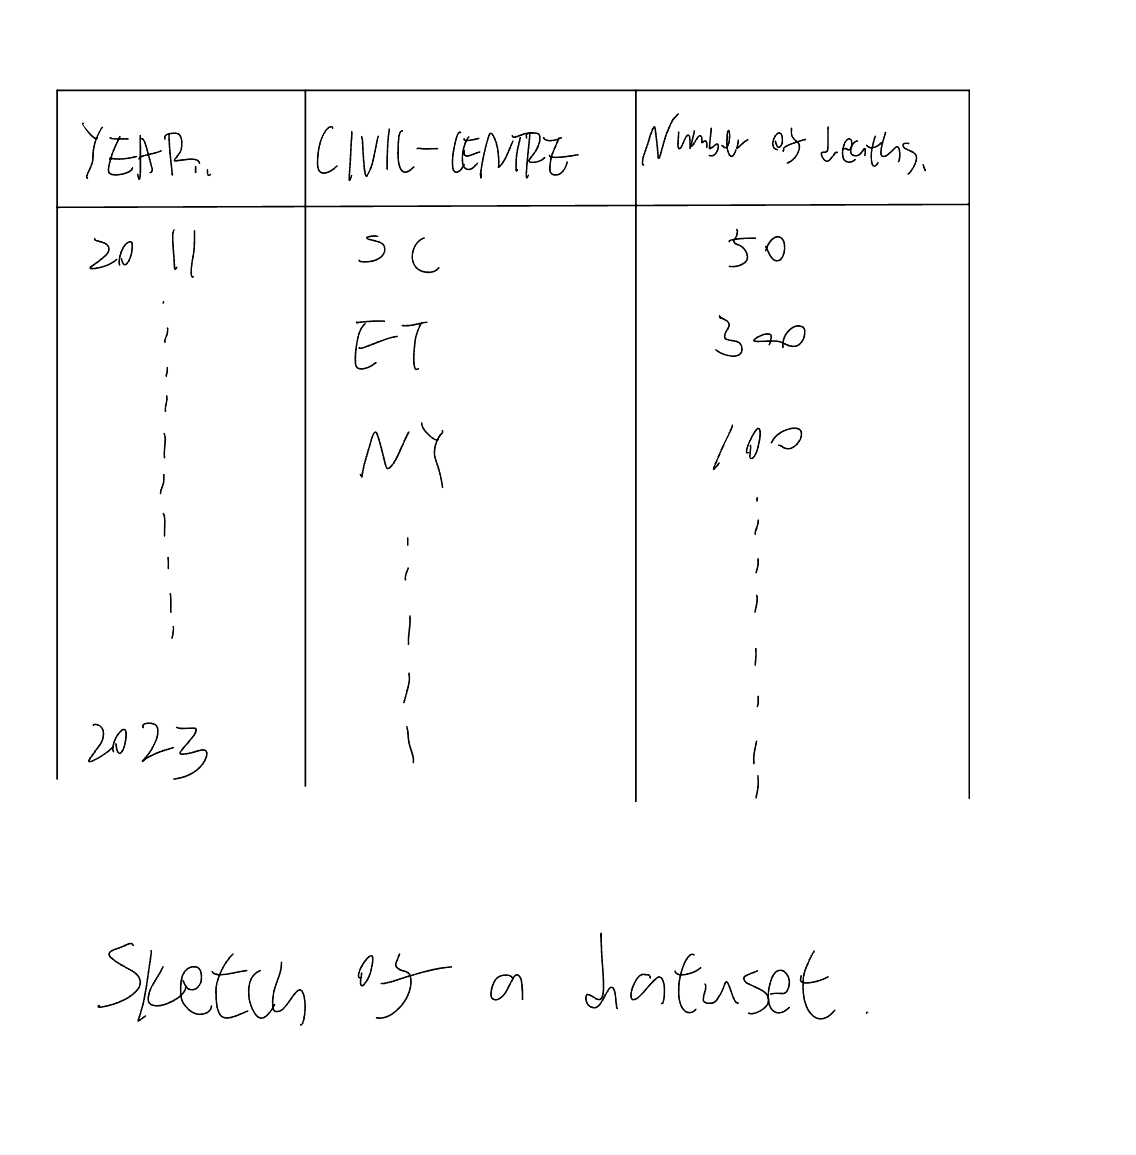 YEAR. CIVIC-CENTRE Number of deaths.
2011 SC 50
ET 300
NY 100
2023
Sketch of a dataset.